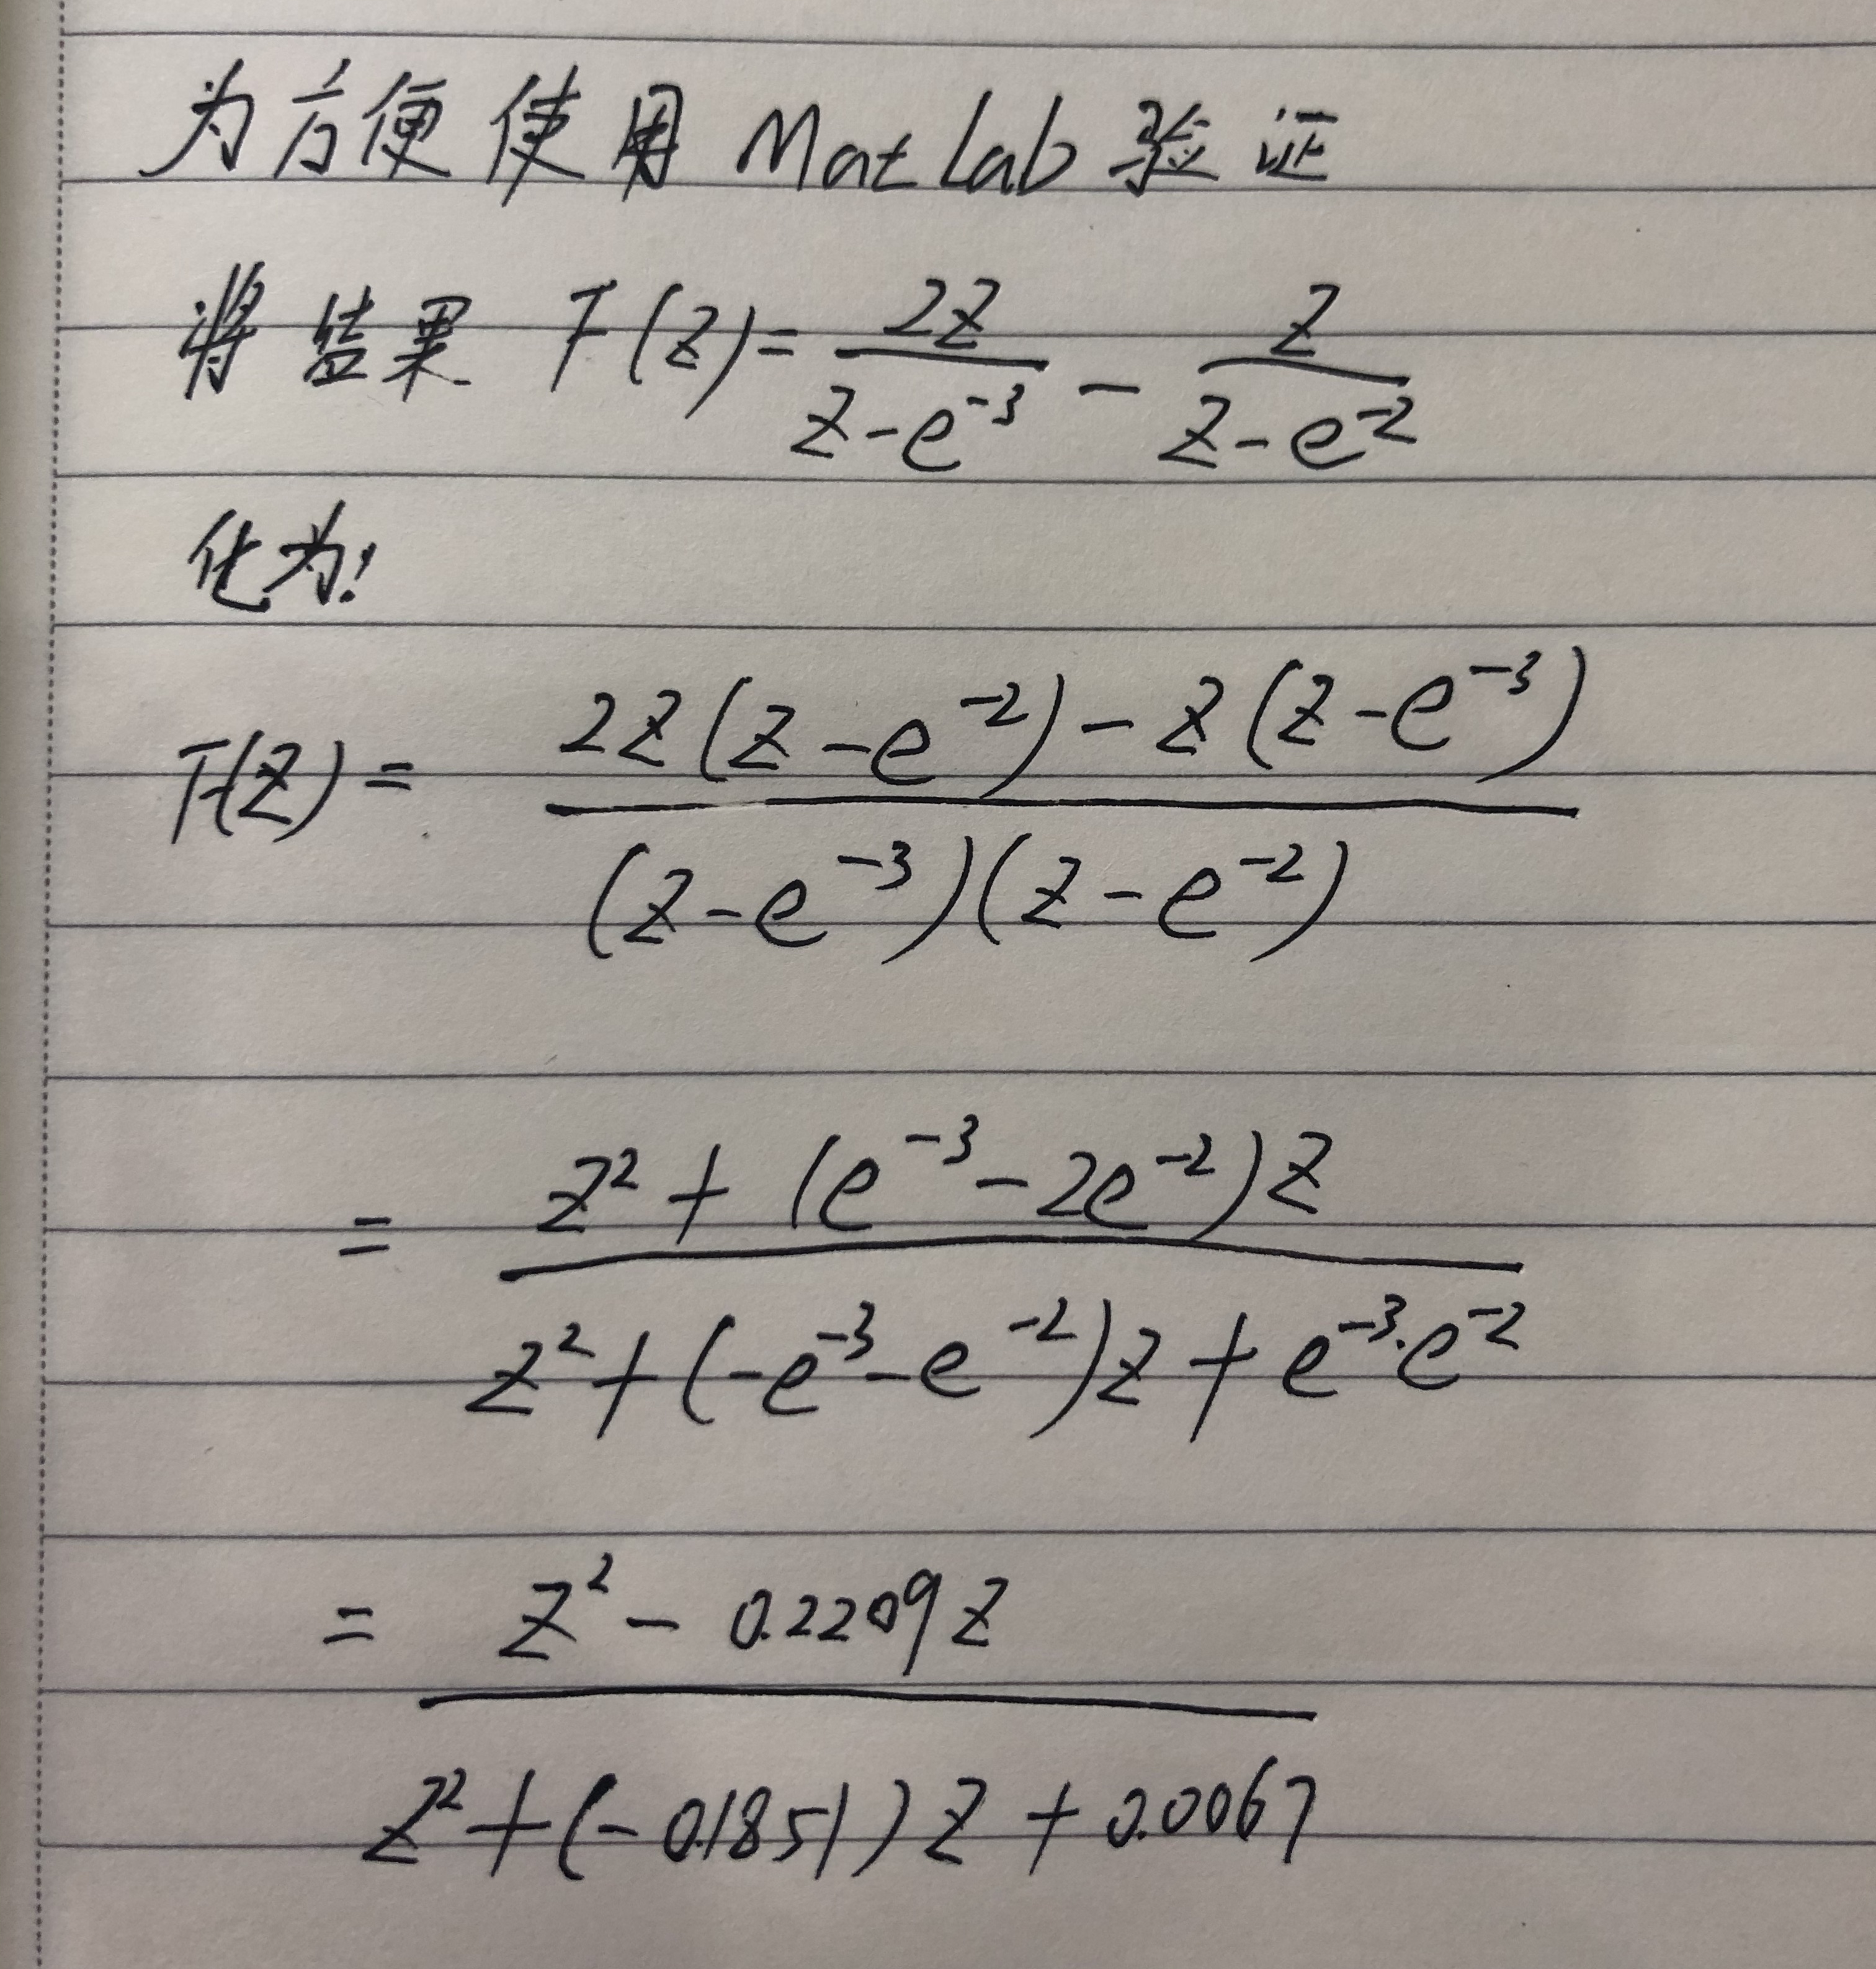 为方便使用 MatLab 验证
将结果 F(Z)= 2Z/(Z-e^-3) - Z/(Z-e^-2)
化为:
F(Z) = (2Z(Z-e^-2)-Z(Z-e^-3))/((Z-e^-3)(Z-e^-2))
= (Z^2+(e^-3-2e^-2)Z)/(Z^2+(-e^-3-e^-2)Z+e^-3·e^-2)
= (Z^2-0.2209Z)/(Z^2+(-0.1851)Z+0.0067)